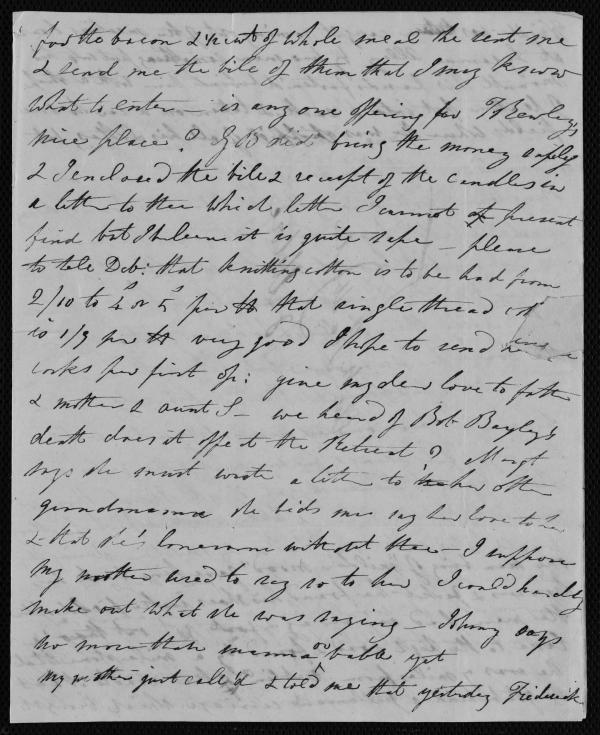 for the bacon & ½ cwt of whole meal he sent me
& send me the bile of them that I may know
what to enter – is any one offering for T Bewley's
nice place? did bring the money safely
& I enclosed the bile & receipt of the candles in
a letter to thee which letter I cannot at present
find but I beleeve it is quite safe – please
to tele Deb: that knitting cotton is to be had from
2/10 to 4s or 5s per lb that single thread
is 1/9 per lb very good I hope to send
corks per first op: give my dear love to father
& mother & aunt S – we heard of Bob Bayley's
death does it affect the Retreat? Margt
says she must wrote a letter to her other
grandmama she bids me say her love to her
& that she's lonesome without thee – I suppose
my mother used to say so to her I could hardly
make out what she was saying – Johnny says
no more than mamma or babbe yet
my mother just cale'd & told me that yesterday Frederick